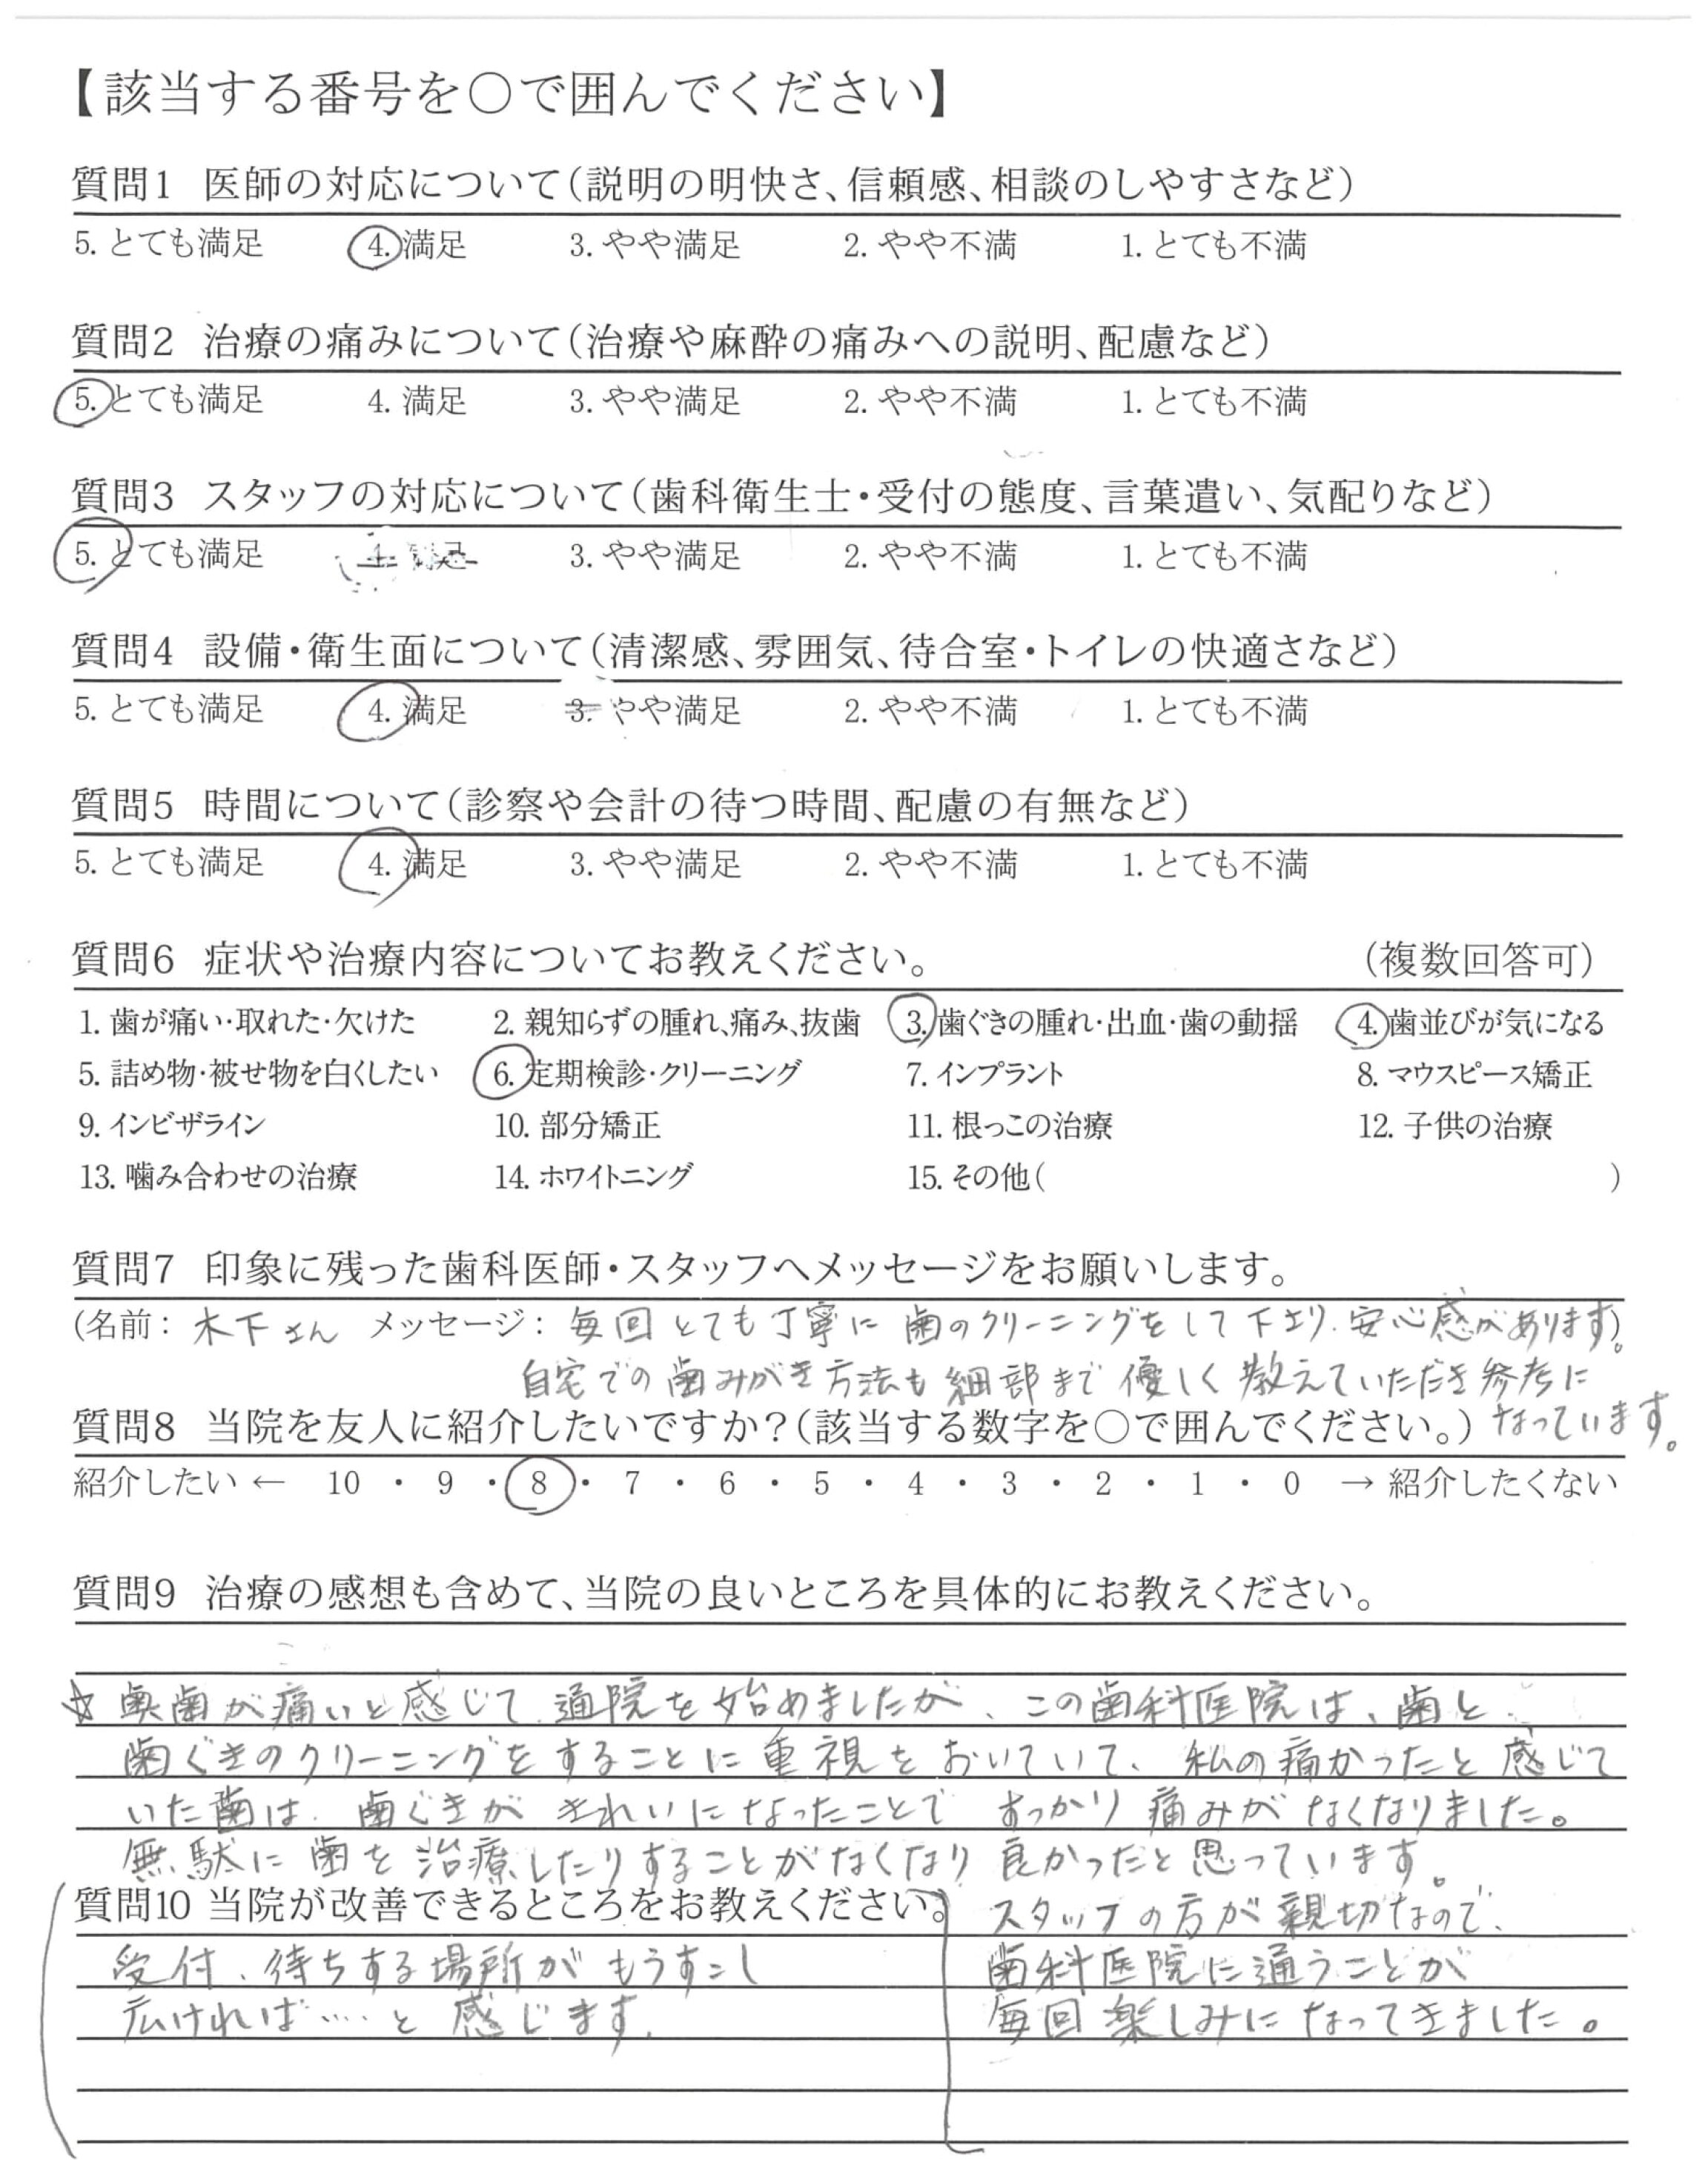 【該当する番号を○で囲んでください】
質問1 医師の対応について(説明の明快さ、信頼感、相談のしやすさなど)
5. とても満足 4. 満足 3. やや満足 2. やや不満 1. とても不満
質問2 治療の痛みについて(治療や麻酔の痛みへの説明、配慮など)
5. とても満足 4. 満足 3. やや満足 2. やや不満 1. とても不満
質問3 スタッフの対応について(歯科衛生士・受付の態度、言葉遣い、気配りなど)
5. とても満足 4. 満足 3. やや満足 2. やや不満 1. とても不満
質問4 設備・衛生面について(清潔感、雰囲気、待合室・トイレの快適さなど)
5. とても満足 4. 満足 3. やや満足 2. やや不満 1. とても不満
質問5 時間について(診察や会計の待つ時間、配慮の有無など)
5. とても満足 4. 満足 3. やや満足 2. やや不満 1. とても不満
質問6 症状や治療内容についてお教えください。 (複数回答可)
1. 歯が痛い・取れた・欠けた 2. 親知らずの腫れ、痛み、抜歯 3. 歯ぐきの腫れ・出血・歯の動揺 4. 歯並びが気になる
5. 詰め物・被せ物を白くしたい 6. 定期検診・クリーニング 7. インプラント 8. マウスピース矯正
9. インビザライン 10. 部分矯正 11. 根っこの治療 12. 子供の治療
13. 噛み合わせの治療 14. ホワイトニング 15. その他( )
質問7 印象に残った歯科医師・スタッフへメッセージをお願いします。
(名前: 木下さん メッセージ: 毎回とても丁寧に歯のクリーニングをして下さり、安心感があります)。
自宅での歯みがき方法も細部まで優しく教えていただき参考に
なっています。
質問8 当院を友人に紹介したいですか?(該当する数字を○で囲んでください。)
紹介したい ← 10 ・ 9 ・ 8 ・ 7 ・ 6 ・ 5 ・ 4 ・ 3 ・ 2 ・ 1 ・ 0 → 紹介したくない
質問9 治療の感想も含めて、当院の良いところを具体的にお教えください。
☆ 奥歯が痛いと感じて、通院を始めましたが、この歯科医院は、歯と
歯ぐきのクリーニングをすることに重視をおいていて、私の痛かったと感じて
いた歯は、歯ぐきがきれいになったことですっかり痛みがなくなりました。
無駄に歯を治療したりすることがなくなり良かったと思っています。
スタッフの方が親切なので、
歯科医院に通うことが
毎回楽しみになってきました。
質問10 当院が改善できるところをお教えください。
受付、待ちする場所がもうすこし
広ければ……と感じます。